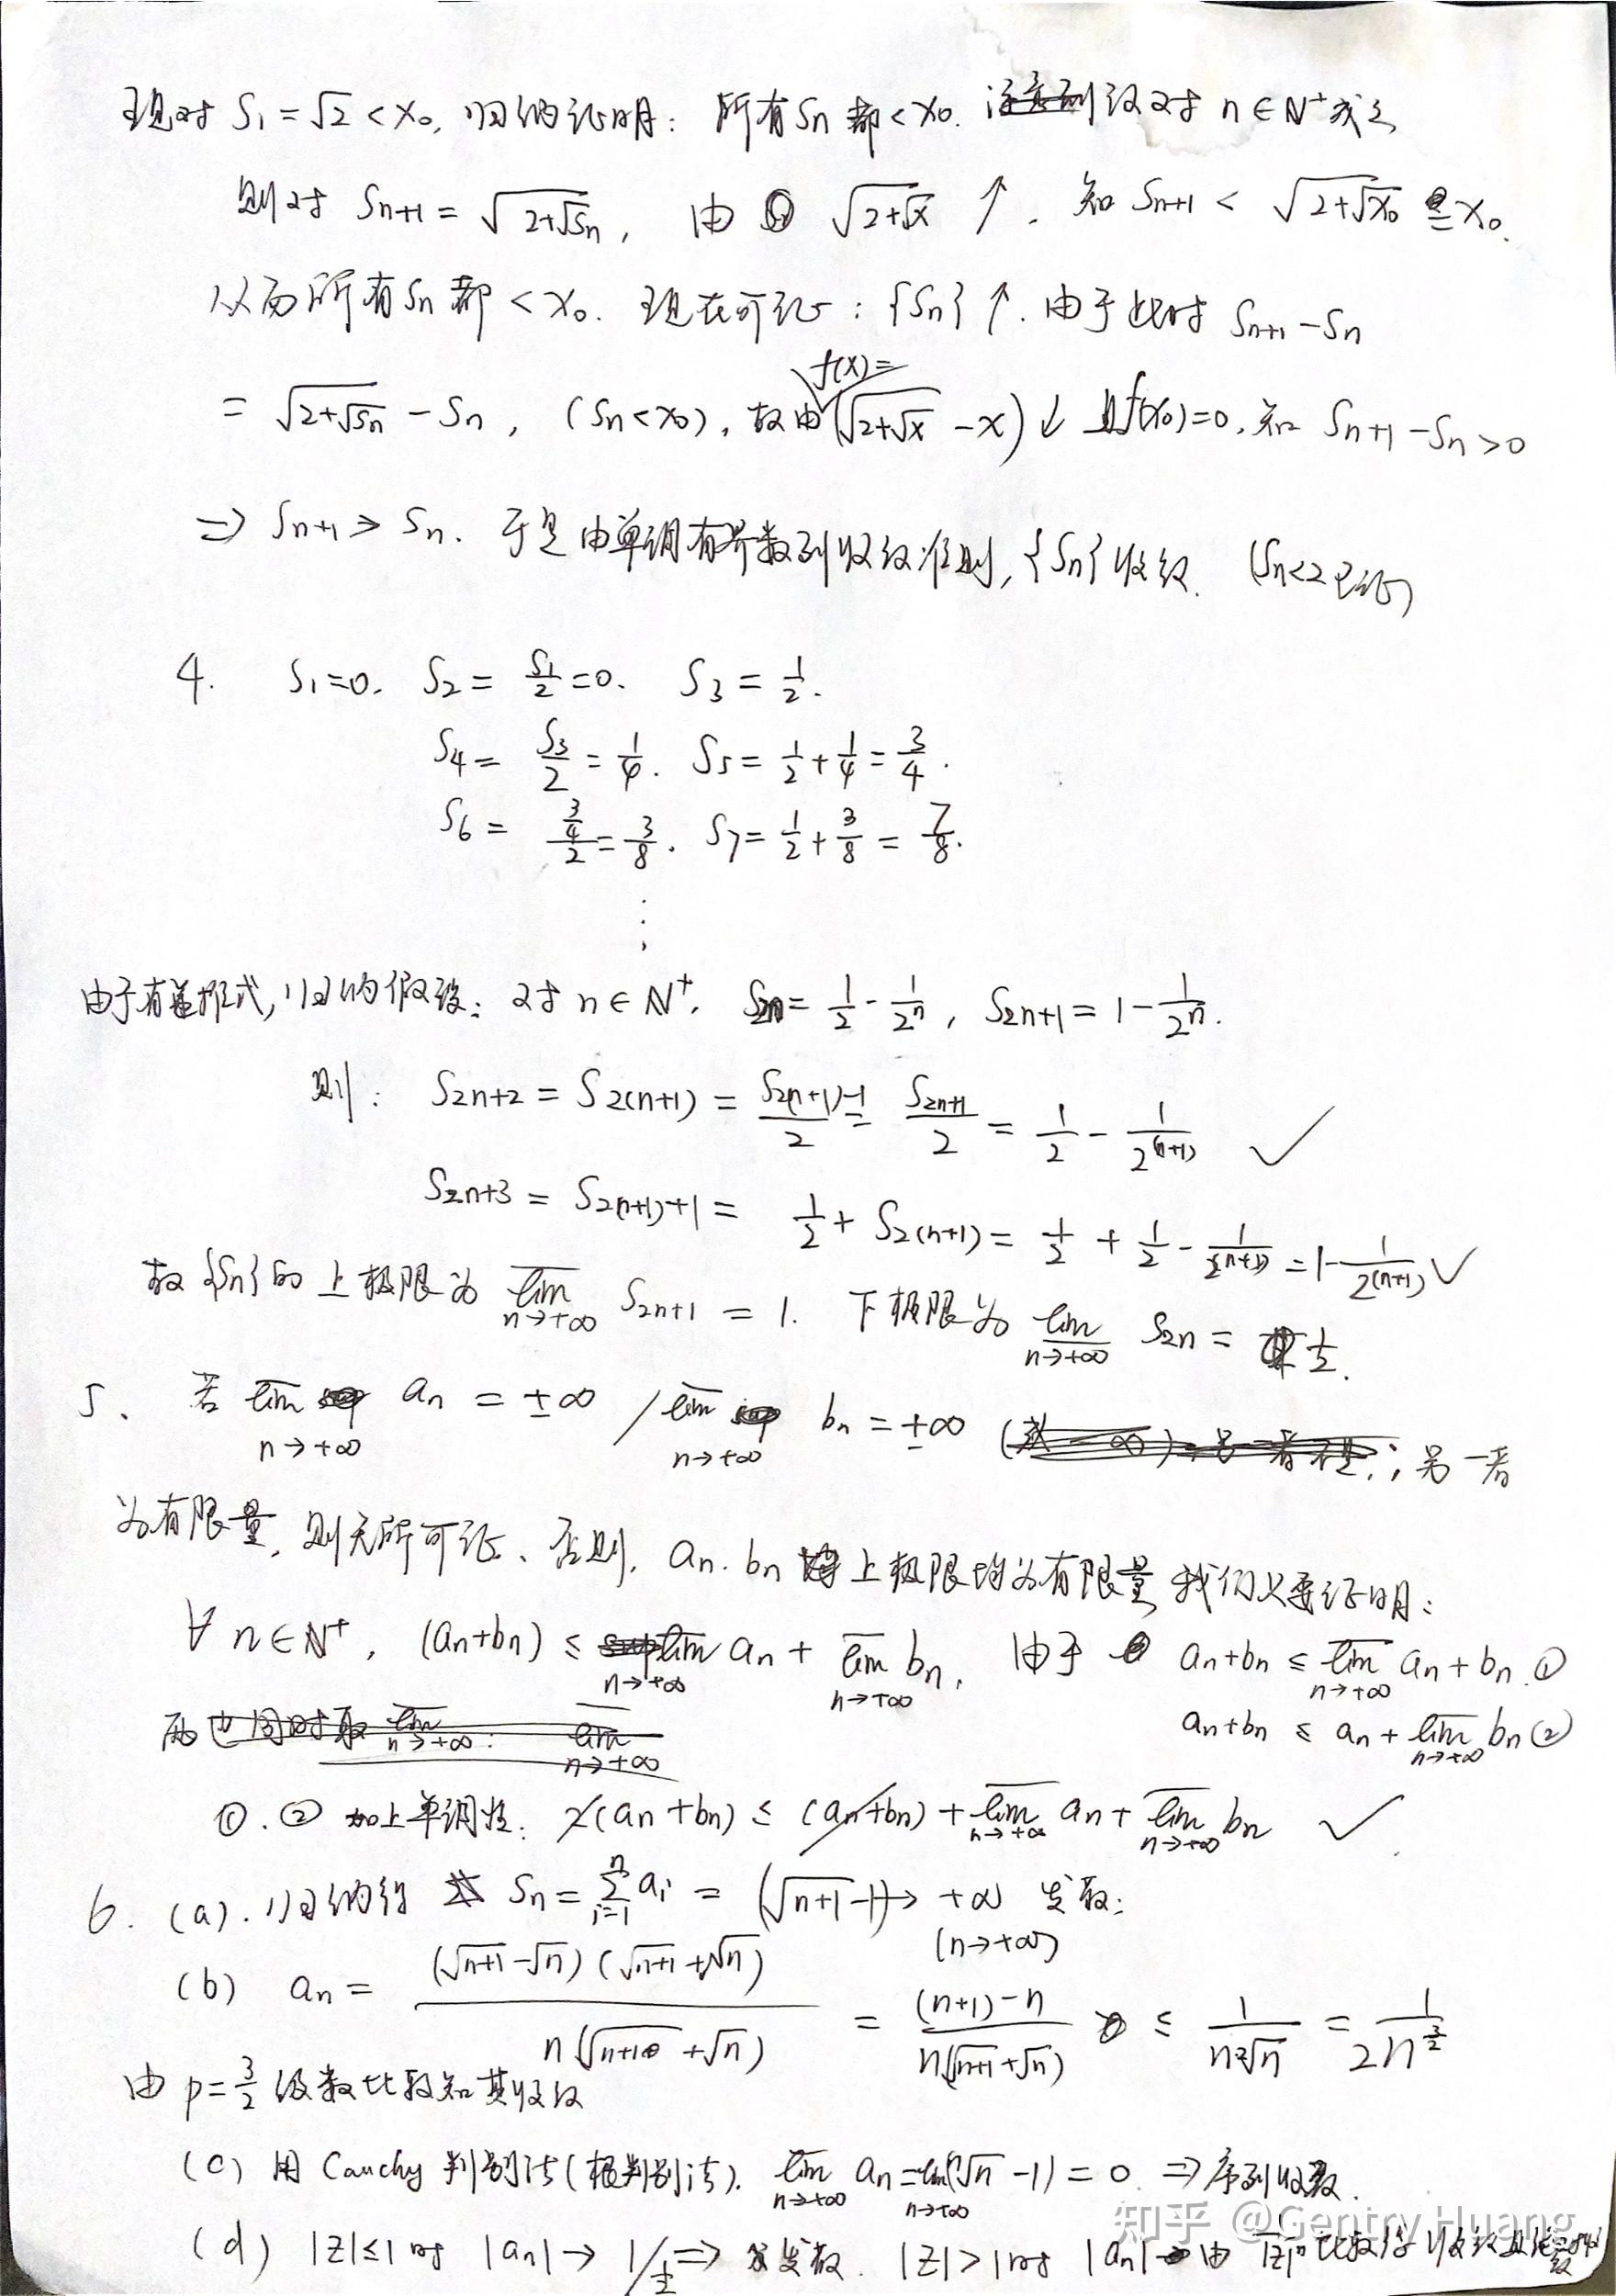 现对 S₁ = √2 < x₀, 归纳证明: 所有 Sn 都 < x₀. 设对 n ∈ N⁺ 成立
则对 Sn+1 = √(2+√Sn), 由 √(2+√x) ↑. 知 Sn+1 < √(2+√x₀) = x₀.
从而所有 Sn 都 < x₀. 现在可证: {Sn} ↑. 由于此时 Sn+1 - Sn
= √(2+√Sn) - Sn, (Sn < x₀), 故由 f(x) = (√(2+√x) - x) ↓ 且 f(x₀)=0, 知 Sn+1 - Sn > 0
⇒ Sn+1 > Sn. 于是由单调有界数列收敛准则, {Sn} 收敛. (Sn<2 已证)
4. S₁=0. S₂ = S₁/2 = 0. S₃ = 1/2.
S₄ = S₃/2 = 1/4. S₅ = 1/2 + 1/4 = 3/4.
S₆ = (3/4)/2 = 3/8. S₇ = 1/2 + 3/8 = 7/8.
⋮
由于有递推式, 归纳假设: 对 n ∈ N⁺, S2n = 1/2 - 1/2ⁿ, S2n+1 = 1 - 1/2ⁿ.
则: S2n+2 = S2(n+1) = S2(n+1)-1/2 = S2n+1/2 = 1/2 - 1/2^(n+1) ✓
S2n+3 = S2(n+1)+1 = 1/2 + S2(n+1) = 1/2 + 1/2 - 1/2^(n+1) = 1 - 1/2^(n+1) ✓
故 {Sn} 的上极限为 lim̅ n→+∞ S2n+1 = 1. 下极限为 lim̲ n→+∞ S2n = 1/2.
5. 若 lim̅ n→+∞ an = ±∞ / lim̅ n→+∞ bn = ±∞ ; 另一者
为有限量, 则无所可证、否则, an. bn 上极限均为有限量 我们只要证明:
∀ n ∈ N⁺, (an+bn) ≤ lim̅ n→+∞ an + lim̅ n→+∞ bn, 由于 an+bn ≤ lim̅ n→+∞ an + bn ①
an+bn ≤ an + lim̅ n→+∞ bn ②
①. ② 加上单调性: 2(an+bn) ≤ (an+bn) + lim̅ n→+∞ an + lim̅ n→+∞ bn ✓
6. (a). 归纳得 Sn = Σ i=1 n ai = (√(n+1) - 1) → +∞ 发散;
(n→+∞)
(b) an = (√(n+1) - √n)(√(n+1) + √n) / n(√(n+1) + √n) = (n+1)-n / n(√(n+1)+√n) ≤ 1/(n·2√n) = 1/(2n^(3/2))
由 p = 3/2 级数比较知其收敛
(c) 用 Cauchy 判别法(根判别法). lim̅ n→+∞ an = lim n→+∞ (ⁿ√n - 1) = 0 ⇒ 序列收敛.
(d) |z| ≤ 1 时 |an| → 1/ ⇒ 发散. |z| > 1 时 |an| 由 1/|z|ⁿ 比较得收敛
知乎 @Gentry Huang